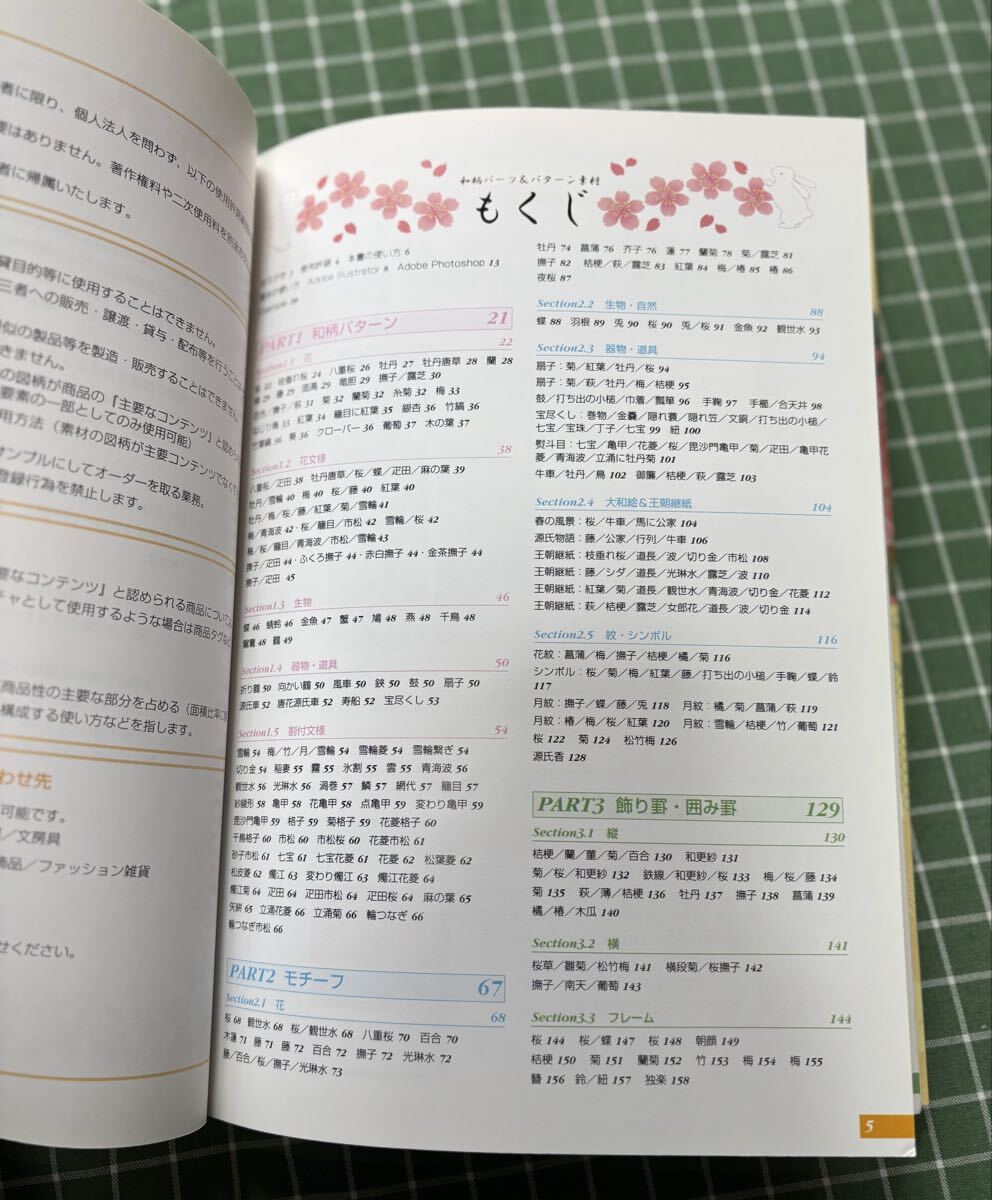 者に限り、個人法人を問わず、以下の使用許諾
要はありません。著作権料や二次使用料を別途お
者に帰属いたします。
貸目的等に使用することはできません。
三者への販売・譲渡・貸与・配布等を行うことは
似の製品等を製造・販売することはできません。
きません。
の図柄が商品の『主要なコンテンツ』と認め
要素の一部としてのみ使用可能）
用方法（素材の図柄が主要コンテンツでなくて
サンプルにしてオーダーを取る業務。
登録行為を禁止します。
要なコンテンツ』と認められる商品については
チャとして使用するような場合は商品タグなど
商品性の主要な部分を占める（面積比率に
構成する使い方などを指します。
わせ先
可能です。
／文房具
飾品／ファッション雑貨
せください。
和柄パーツ&パターン素材
もくじ
使用許諾 4 本書の使い方 6
Adobe Illustrator 8 Adobe Photoshop 13
PART1 和柄パターン 21
Section1.1 花 22
枝垂れ桜 24 八重桜 26 牡丹 27 牡丹唐草 28 蘭 28
藤 29 面高 29 竜胆 29 撫子／露芝 30
百合／撫子／萩 31 菊 32 蘭菊 32 糸菊 32 梅 33
ねじり梅 33 紅葉 34 籠目に紅葉 35 銀杏 36 竹縞 36
竹葉縞 36 葵 36 クローバー 36 葡萄 37 木の葉 37
Section1.2 花文様 38
八重桜／疋田 38 牡丹唐草／桜／蝶／疋田／麻の葉 39
牡丹／雪輪 40 梅 40 桜／藤 40 紅葉 40
牡丹／梅／桜／藤／紅葉／菊／雪輪 41
梅／青海波 42・桜／籠目／市松 42 雪輪／桜 42
梅／桜／籠目／青海波／市松／雪輪 43
撫子／疋田 44・ふくろ撫子 44・赤白撫子 44・金茶撫子 44
撫子／疋田 45
Section1.3 生物 46
蝶 46 蜻蛉 46 金魚 47 蟹 47 鳩 48 燕 48 千鳥 48
鴛鴦 48 鶴 49
Section1.4 器物・道具 50
折り鶴 50 向かい鶴 50 風車 50 鋏 50 鼓 50 扇子 50
源氏車 52 唐花源氏車 52 寿船 52 宝尽くし 53
Section1.5 割付文様 54
雪輪 54 梅／竹／月／雪輪 54 雪輪菱 54 雪輪繋ぎ 54
切り金 54 稲妻 55 霧 55 氷割 55 雲 55 青海波 56
観世水 56 光琳水 56 渦巻 57 鱗 57 網代 57 籠目 57
紗綾形 58 亀甲 58 花亀甲 58 点亀甲 59 変わり亀甲 59
毘沙門亀甲 59 格子 59 菊格子 60 花菱格子 60
千鳥格子 60 市松 60 市松桜 60 花菱市松 61
砂子市松 61 七宝 61 七宝花菱 61 花菱 62 松葉菱 62
松皮菱 62 燭江 63 変わり燭江 63 燭江花菱 64
燭江菊 64 疋田 64 疋田市松 64 疋田桜 64 麻の葉 65
矢絣 65 立涌花菱 66 立涌菊 66 輪つなぎ 66
輪つなぎ市松 66
PART2 モチーフ 67
Section2.1 花 68
桜 68 観世水 68 桜／観世水 68 八重桜 70 百合 70
木蓮 71 藤 71 藤 72 百合 72 撫子 72 光琳水 72
藤／百合／桜／撫子／光琳水 73
牡丹 74 菖蒲 76 芥子 76 蓮 77 蘭菊 78 菊／露芝 81
撫子 82 桔梗／萩／露芝 83 紅葉 84 梅／椿 85 椿 86
夜桜 87
Section2.2 生物・自然 88
蝶 88 羽根 89 兎 90 桜 90 兎／桜 91 金魚 92 観世水 93
Section2.3 器物・道具 94
扇子：菊／紅葉／牡丹／桜 94
扇子：菊／萩／牡丹／梅／桔梗 95
鼓／打ち出の小槌／巾着／瓢箪 96 手鞠 97 手櫛／合天井 98
宝尽くし：巻物／金嚢／隠れ蓑／隠れ笠／文銅／打ち出の小槌／
七宝／宝珠／丁子／七宝 99 紐 100
熨斗目：七宝／亀甲／花菱／桜／毘沙門亀甲／菊／疋田／亀甲花
菱／青海波／立涌に牡丹菊 101
牛車／牡丹／鳥 102 御簾／桔梗／萩／露芝 103
Section2.4 大和絵＆王朝継紙 104
春の風景：桜／牛車／馬に公家 104
源氏物語：藤／公家／行列／牛車 106
王朝継紙：枝垂れ桜／道長／波／切り金／市松 108
王朝継紙：藤／シダ／道長／光琳水／露芝／波 110
王朝継紙：紅葉／菊／道長／観世水／青海波／切り金／花菱 112
王朝継紙：萩／桔梗／露芝／女郎花／道長／波／切り金 114
Section2.5 紋・シンボル 116
花紋：菖蒲／梅／撫子／桔梗／橘／菊 116
シンボル：桜／菊／梅／紅葉／藤／打ち出の小槌／手鞠／蝶／鈴
117
月紋：撫子／蝶／藤／兎 118 月紋：橘／菊／菖蒲／萩 119
月紋：椿／梅／桜／紅葉 120 月紋：雪輪／桔梗／竹／葡萄 121
桜 122 菊 124 松竹梅 126
源氏香 128
PART3 飾り罫・囲み罫 129
Section3.1 縦 130
桔梗／蘭／菫／菊／百合 130 和更紗 131
菊／桜／和更紗 132 鉄線／和更紗／桜 133 梅／桜／藤 134
菊 135 萩／薄／桔梗 136 牡丹 137 撫子 138 菖蒲 139
橘／椿／木瓜 140
Section3.2 横 141
桜草／雛菊／松竹梅 141 横段菊／桜撫子 142
撫子／南天／葡萄 143
Section3.3 フレーム 144
桜 144 桜／蝶 147 桜 148 朝顔 149
桔梗 150 菊 151 蘭菊 152 竹 153 梅 154 梅 155
簪 156 鈴／紐 157 独楽 158
5